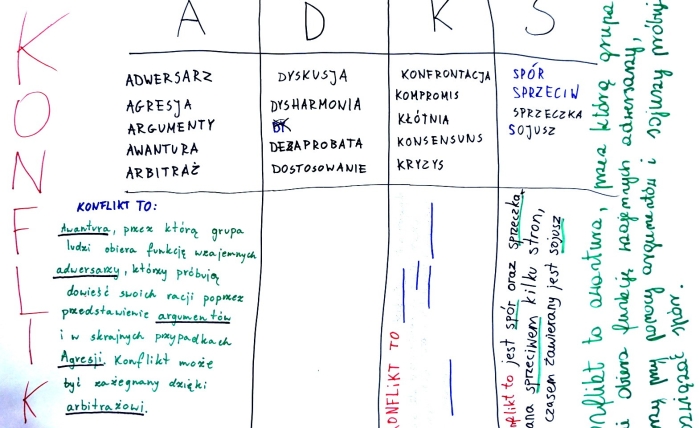 KONFLIK
A D K S
ADWERSARZ
AGRESJA
ARGUMENTY
AWANTURA
ARBITRAŻ
DYSKUSJA
DYSHARMONIA
DEZAPROBATA
DOSTOSOWANIE
KONFRONTACJA
KOMPROMIS
KŁÓTNIA
KONSENSUNS
KRYZYS
SPÓR
SPRZECIW
SPRZECZKA
SOJUSZ
KONFLIKT TO:
Awantura, przez którą grupa
ludzi obiera funkcję wzajemnych
adwersarzy, którzy próbują
dowieść swoich racji poprzez
przedstawienie argumentów
i w skrajnych przypadkach
Agresji. Konflikt może
być zażegnany dzięki
arbitrażowi.
ONFLIKT TO
flikt to jest spór oraz sprzeczka
ana sprzeciwem kilku stron,
czasem zawierany jest sojusz
nflikt to awantura, przez którą grupa
i obiera funkcję wzajemnych adwersarzy,
rzy przy pomocy argumentów i sojuszy próbuj
związać spór.